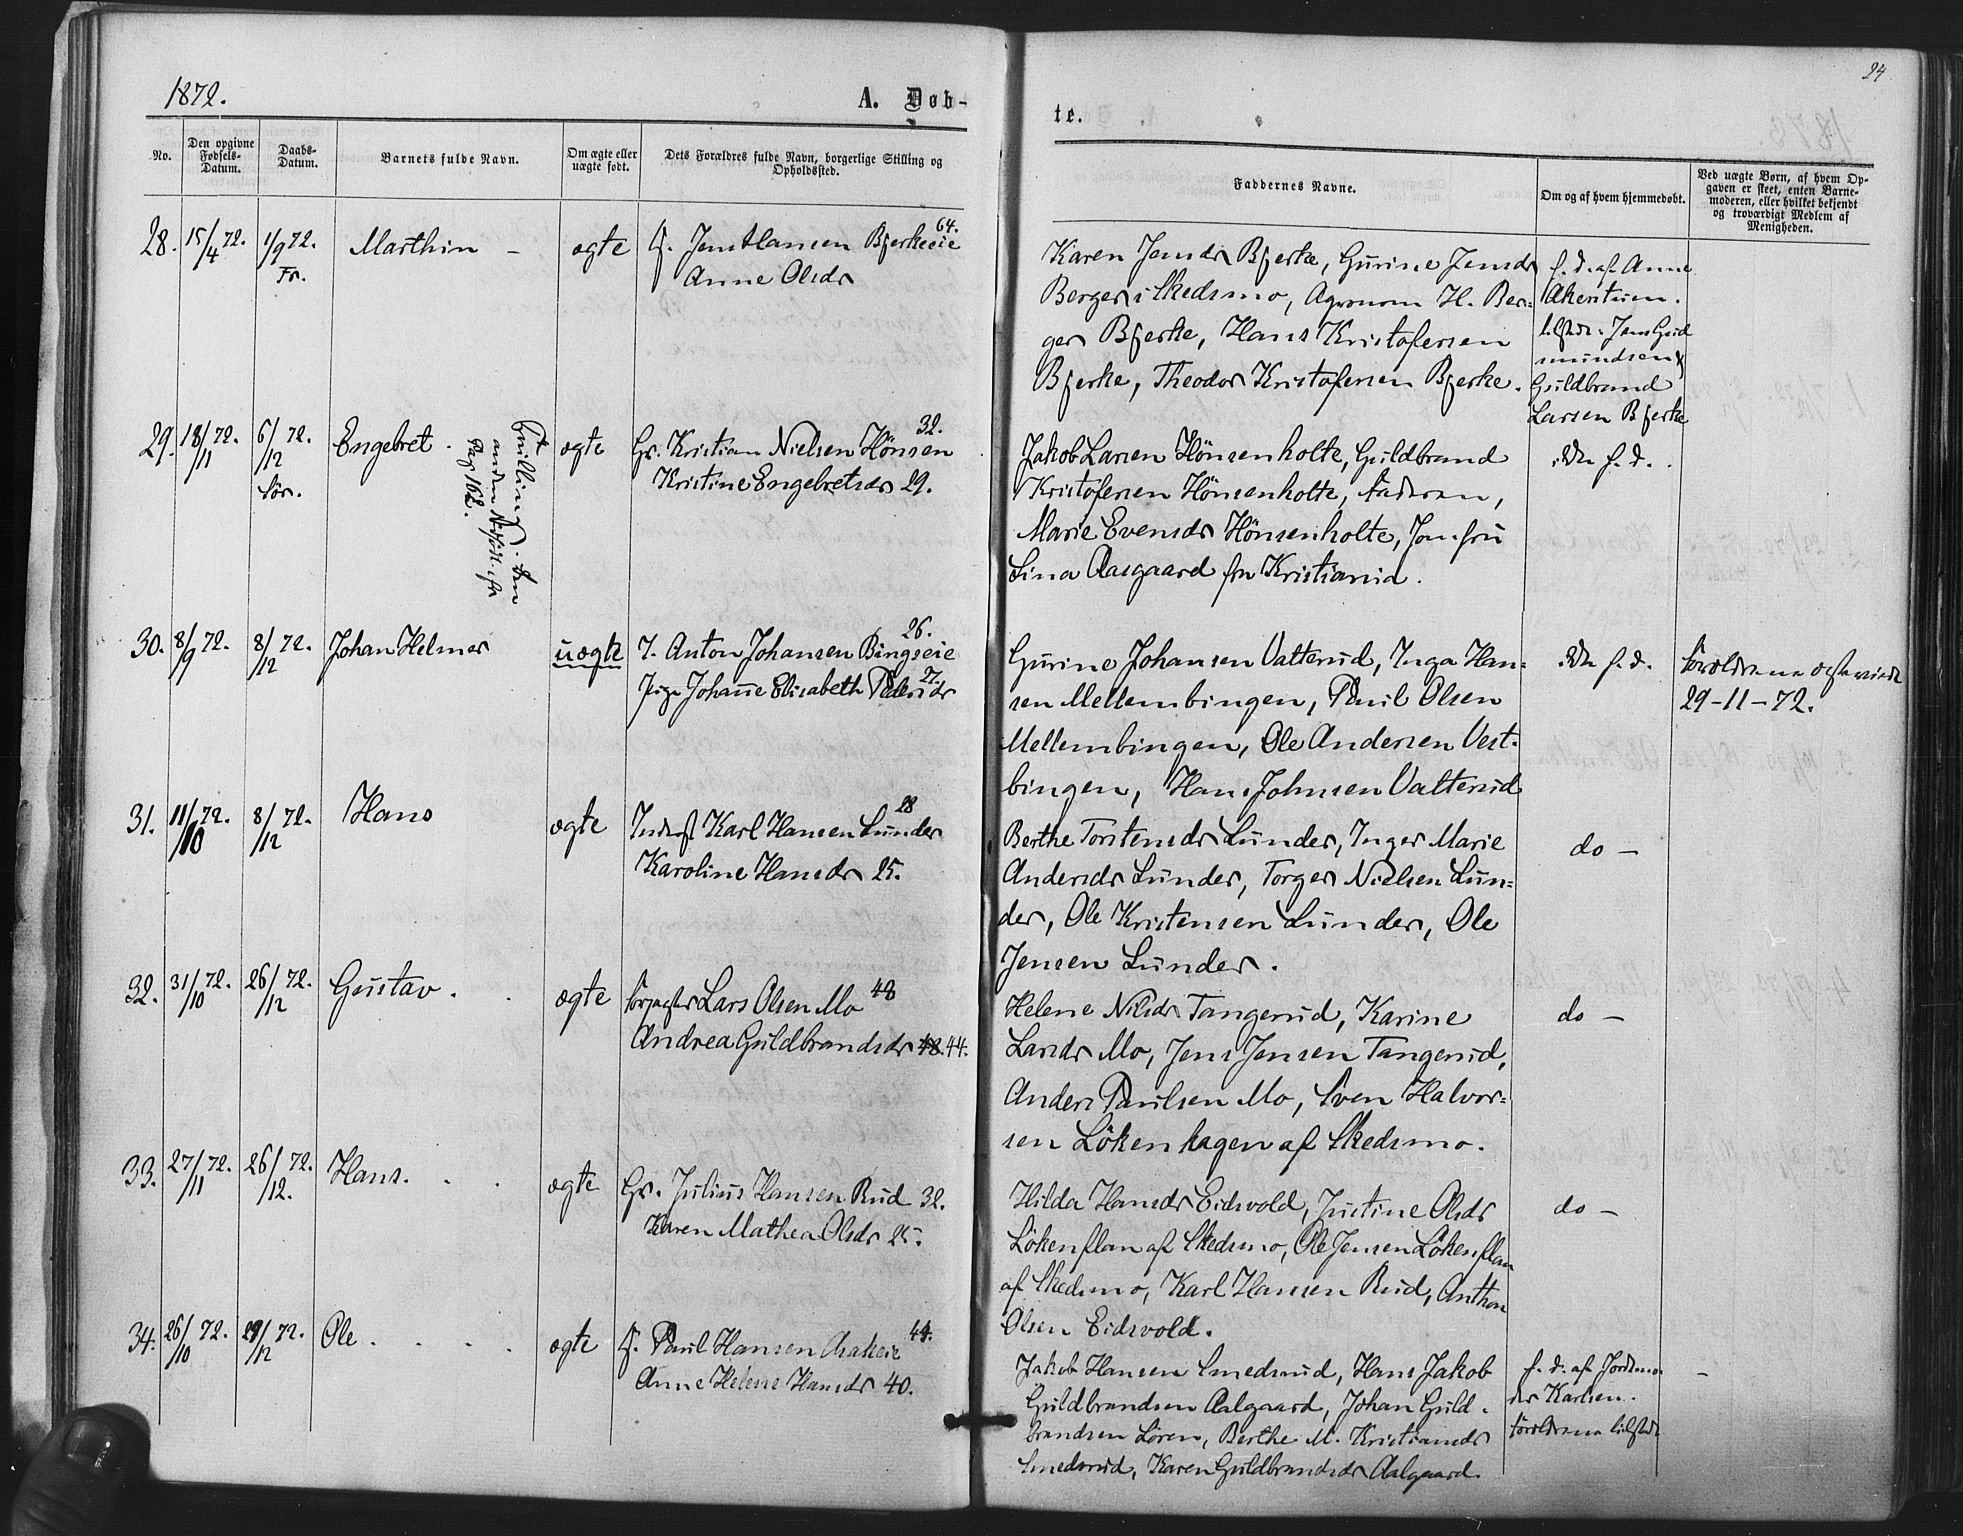 1872.
A. Døb-
No.
Den opgivne Fødsels-Datum.
Daabs-Datum.
Barnets fulde Navn.
Om ægte eller uægte født.
Dets Forældres fulde Navn, borgerlige Stilling og Opholdssted.
28. 15/4 72. 1/9 72. Marthin - ægte Jens Hansen Bjerkeeie 64.
Fr. Anne Olsdr
29. 18/11 72. 6/12 72. Engebret. ægte Gr. Kristian Nielsen Hönsen 32.
Kristine Engebretsdr 29.
Tvilling. Den
anden
Pag 162.
30. 8/9 72. 8/12 72. Johan Helmer uægte T. Anton Johansen Bingseie 26.
Pige Johanne Elisabeth Pedersdr 27.
31. 11/10 72. 8/12 72. Hans ægte Inderst Karl Hansen Lunder 28
Karoline Hansdr 25.
32. 31/10 72. 26/12 72. Gustav. ægte Forpagter Lars Olsen Mo 48
Andrea Guldbrandsdr 48. 44.
33. 27/11 72. 26/12 72. Hans. ægte Gr. Julius Hansen Rud 32.
Karen Mathea Olsdr 25.
34. 26/10 72. 29/12 72. Ole ægte Paul Hansen Asakeie 44.
Anne Helene Hansdr 40.
24
te.
Faddernes Navne.
Om og af hvem hjemmedøbt.
Ved uægte Børn, af hvem Opgaven er skeet, enten Barnemoderen, eller hvilket bekjendt og troværdigt Medlem af Menigheden.
Karen Jensdr Bjerke, Gurine Jensdr
Berger i Skedsmo, Agronom H. Ber-
ger Bjerke, Hans Kristofersen
Bjerke, Theodor Kristofersen Bjerke.
h. d. af Anne
Akentun.
tilstede: Jens Gud
mundsen &
Guldbrand
Larsen Bjerke
Jakob Larsen Hönsenholte, Guldbrand
Kristofersen Hönsenholte, Faderen,
Marie Evensdr Hönsenholte, Jomfru
Lina Aasgaard fra Kristiania.
ikke h. d.
Gurine Johansen Valterud, Inga Han-
sen Mellembingen, Paul Olsen
Mellembingen, Ole Andersen Vest-
bingen, Hans Johnsen Valterud
ikke h. d.
Forældrene ægteviede
29-11-72.
Berthe Torstensdr Lunder, Inger Marie
Andersdr Lunder, Torger Nielsen Lun-
der, Ole Kristensen Lunder, Ole
Jensen Lunder.
do -
Helene Nilsdr Tangerud, Karine
Larsdr Mo, Jens Jensen Tangerud,
Anders Paulsen Mo, Sven Halvor-
sen Lökenhagen af Skedsmo.
do -
Hilda Hansdr Eidsvold, Justine Olsdr
Lökenflan af Skedsmo, Ole Jensen Lökenflan
af Skedsmo, Karl Hansen Rud, Anthon
Olsen Eidsvold.
do -
Jakob Hansen Smedsrud, Hans Jakob
Guldbrandsen Aalgaard, Johan Guld-
brandsen Lören, Berthe M. Kristiansdr
Smedsrud, Karen Guldbrandsdr Aalgaard.
h. d. af Jordemo-
der Karlsen.
Forældrene tilstede
-